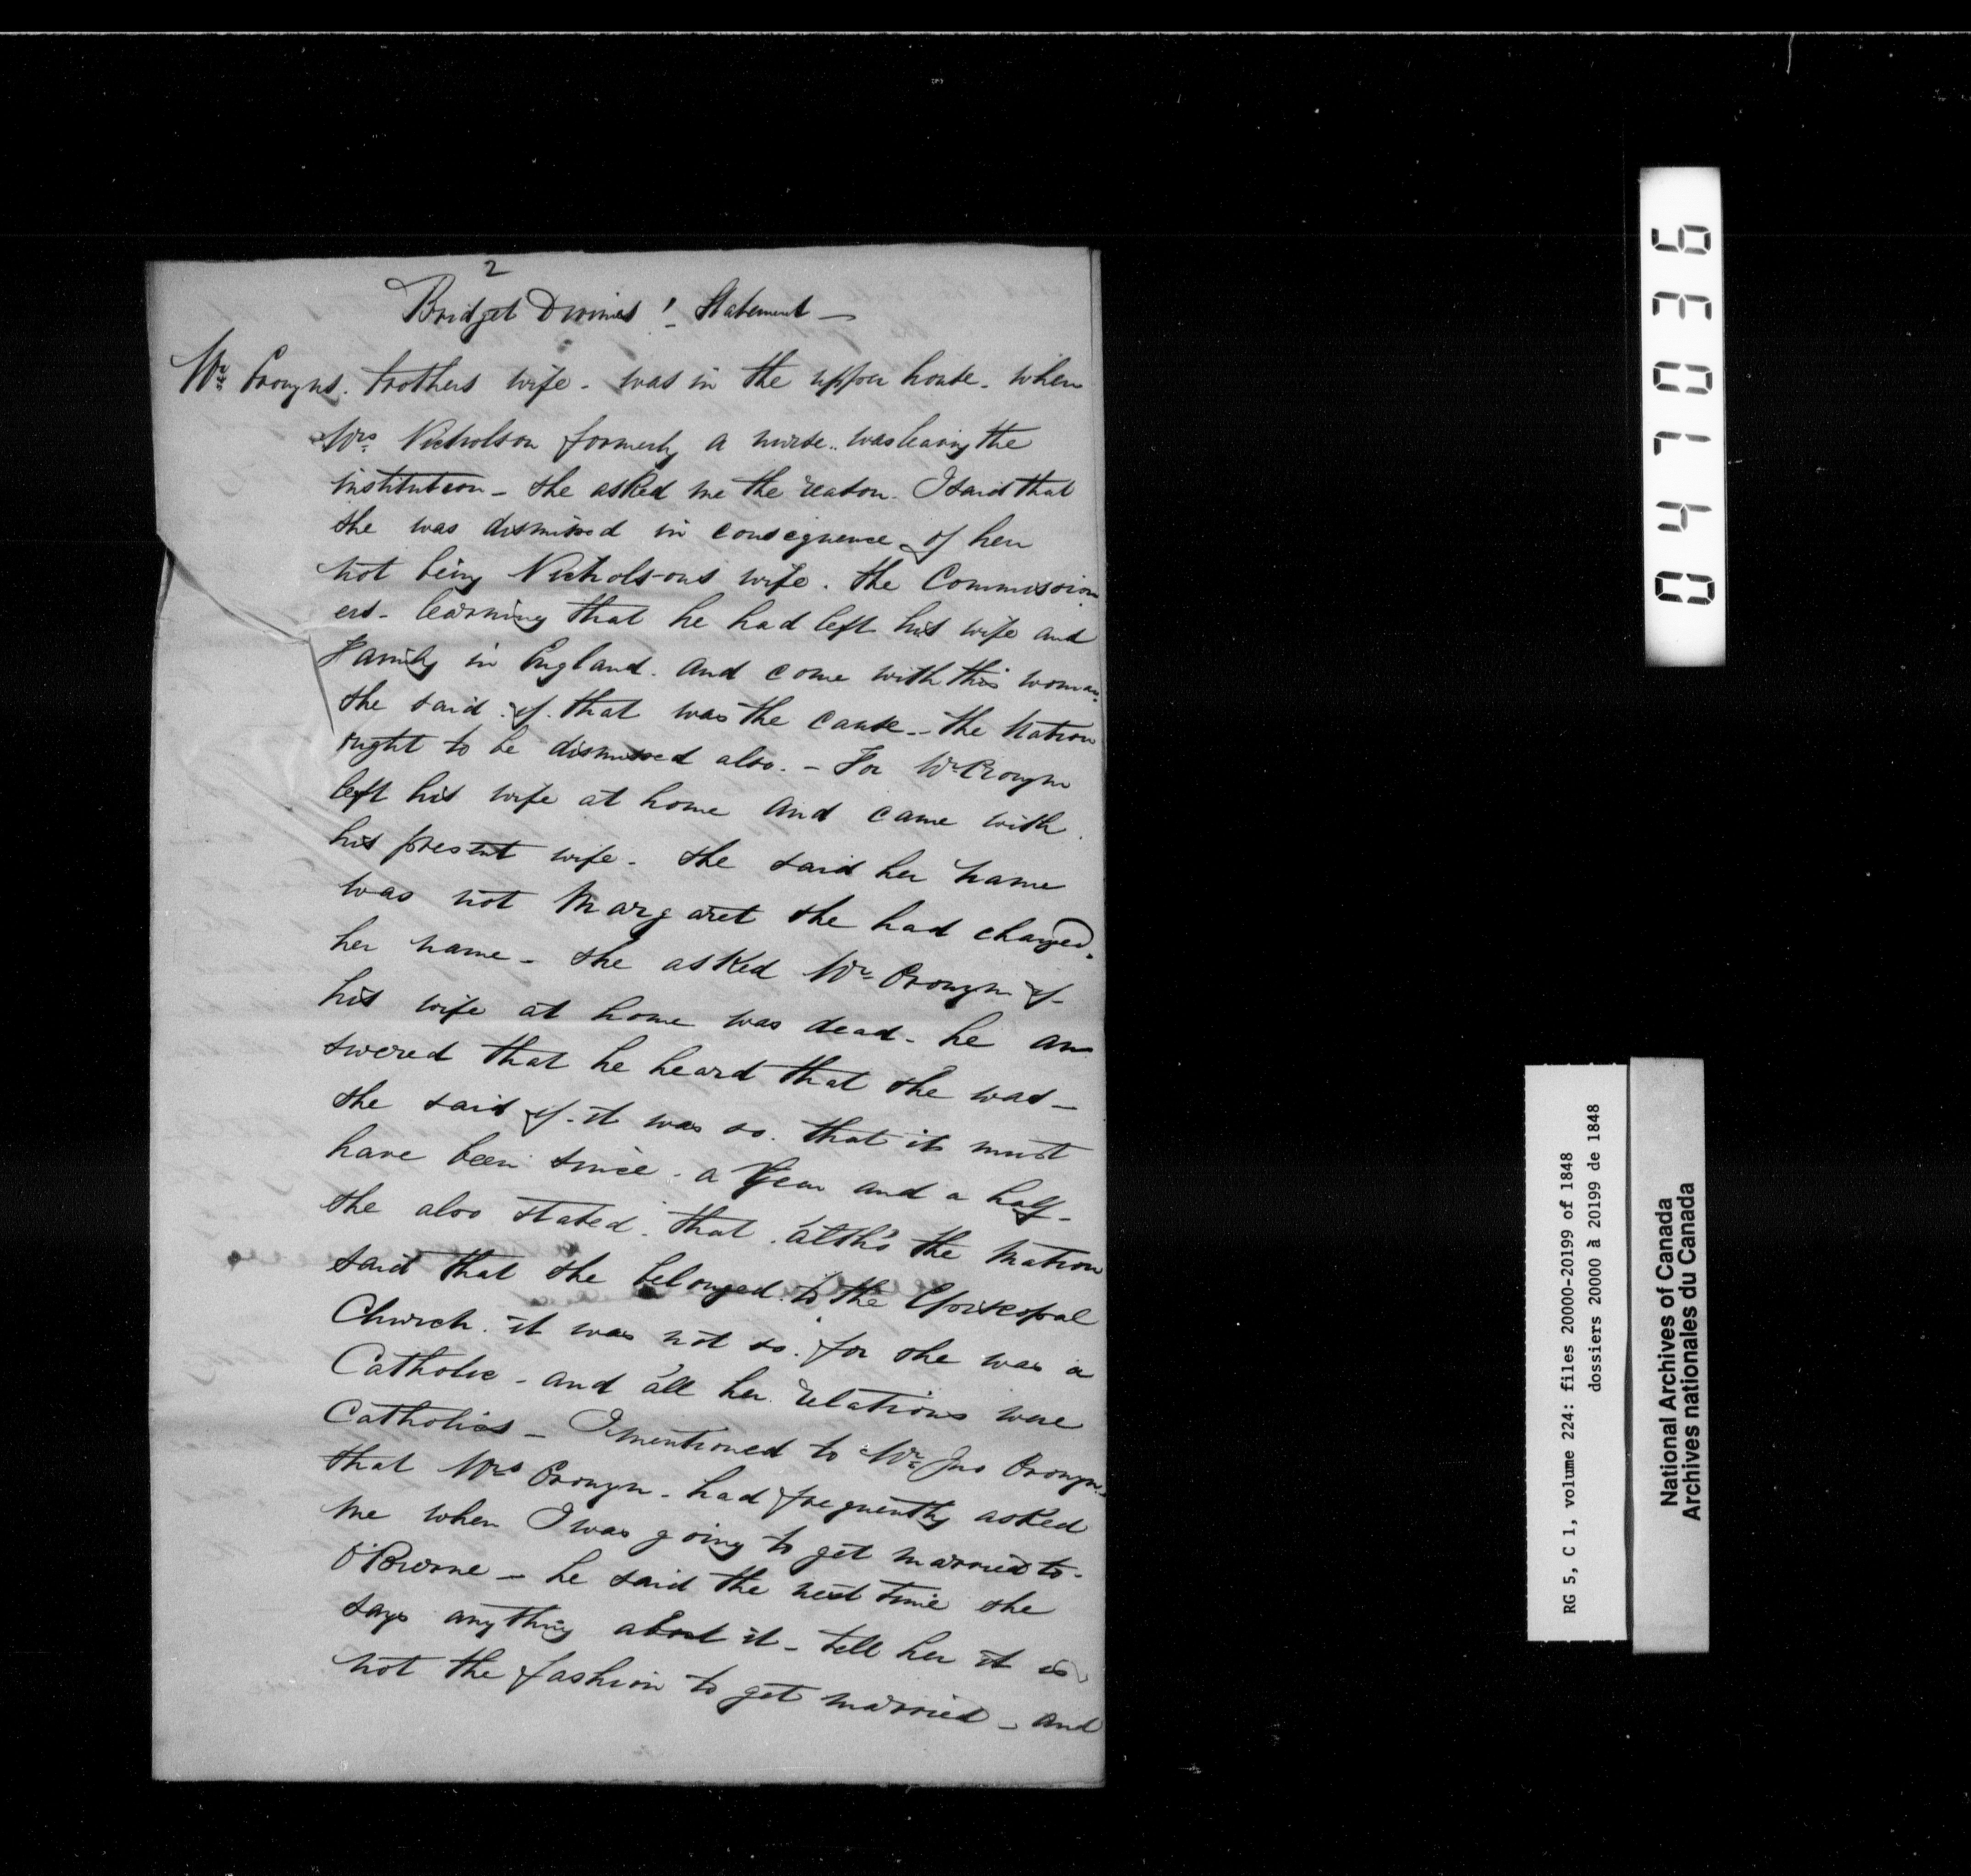 2
Bridget Devines' Statement —
Mr Cronyns. brothers wife - was in the upper house. when
Mrs Nicholson formerly a nurse.. was leaving the
institution - she asked me the reason. I said that
she was dismissed in consequence of her
not being Nicholsons wife. the Commission
ers. learning that he had left his wife and
Family in England. and come with this woman.
she said. if that was the cause - the Matron
ought to be dismissed also. - For Mr Cronyn
left his wife at home and came with
his present wife - she said her name
was not Margaret she had changed.
her name - she asked Mr Cronyn if
his wife at home was dead - he an
swered that he heard that she was -
she said if it was so. that it must
have been since - a Year and a half -
she also stated. that altho the Matron
said that she belonged to the Episcopal
Church. it was not so. for she was a
Catholic - and all her relations were
Catholics - I mentioned to Mr Jno Cronyn.
that Mrs Cronyn - had frequently asked
me when I was going to get married to -
O'Bierne - he said the next time she
says anything about it - tell her it is
not the fashion to get married - and
047036
RG 5, C 1, volume 224: files 20000-20199 of 1848
dossiers 20000 à 20199 de 1848
National Archives of Canada
Archives nationales du Canada